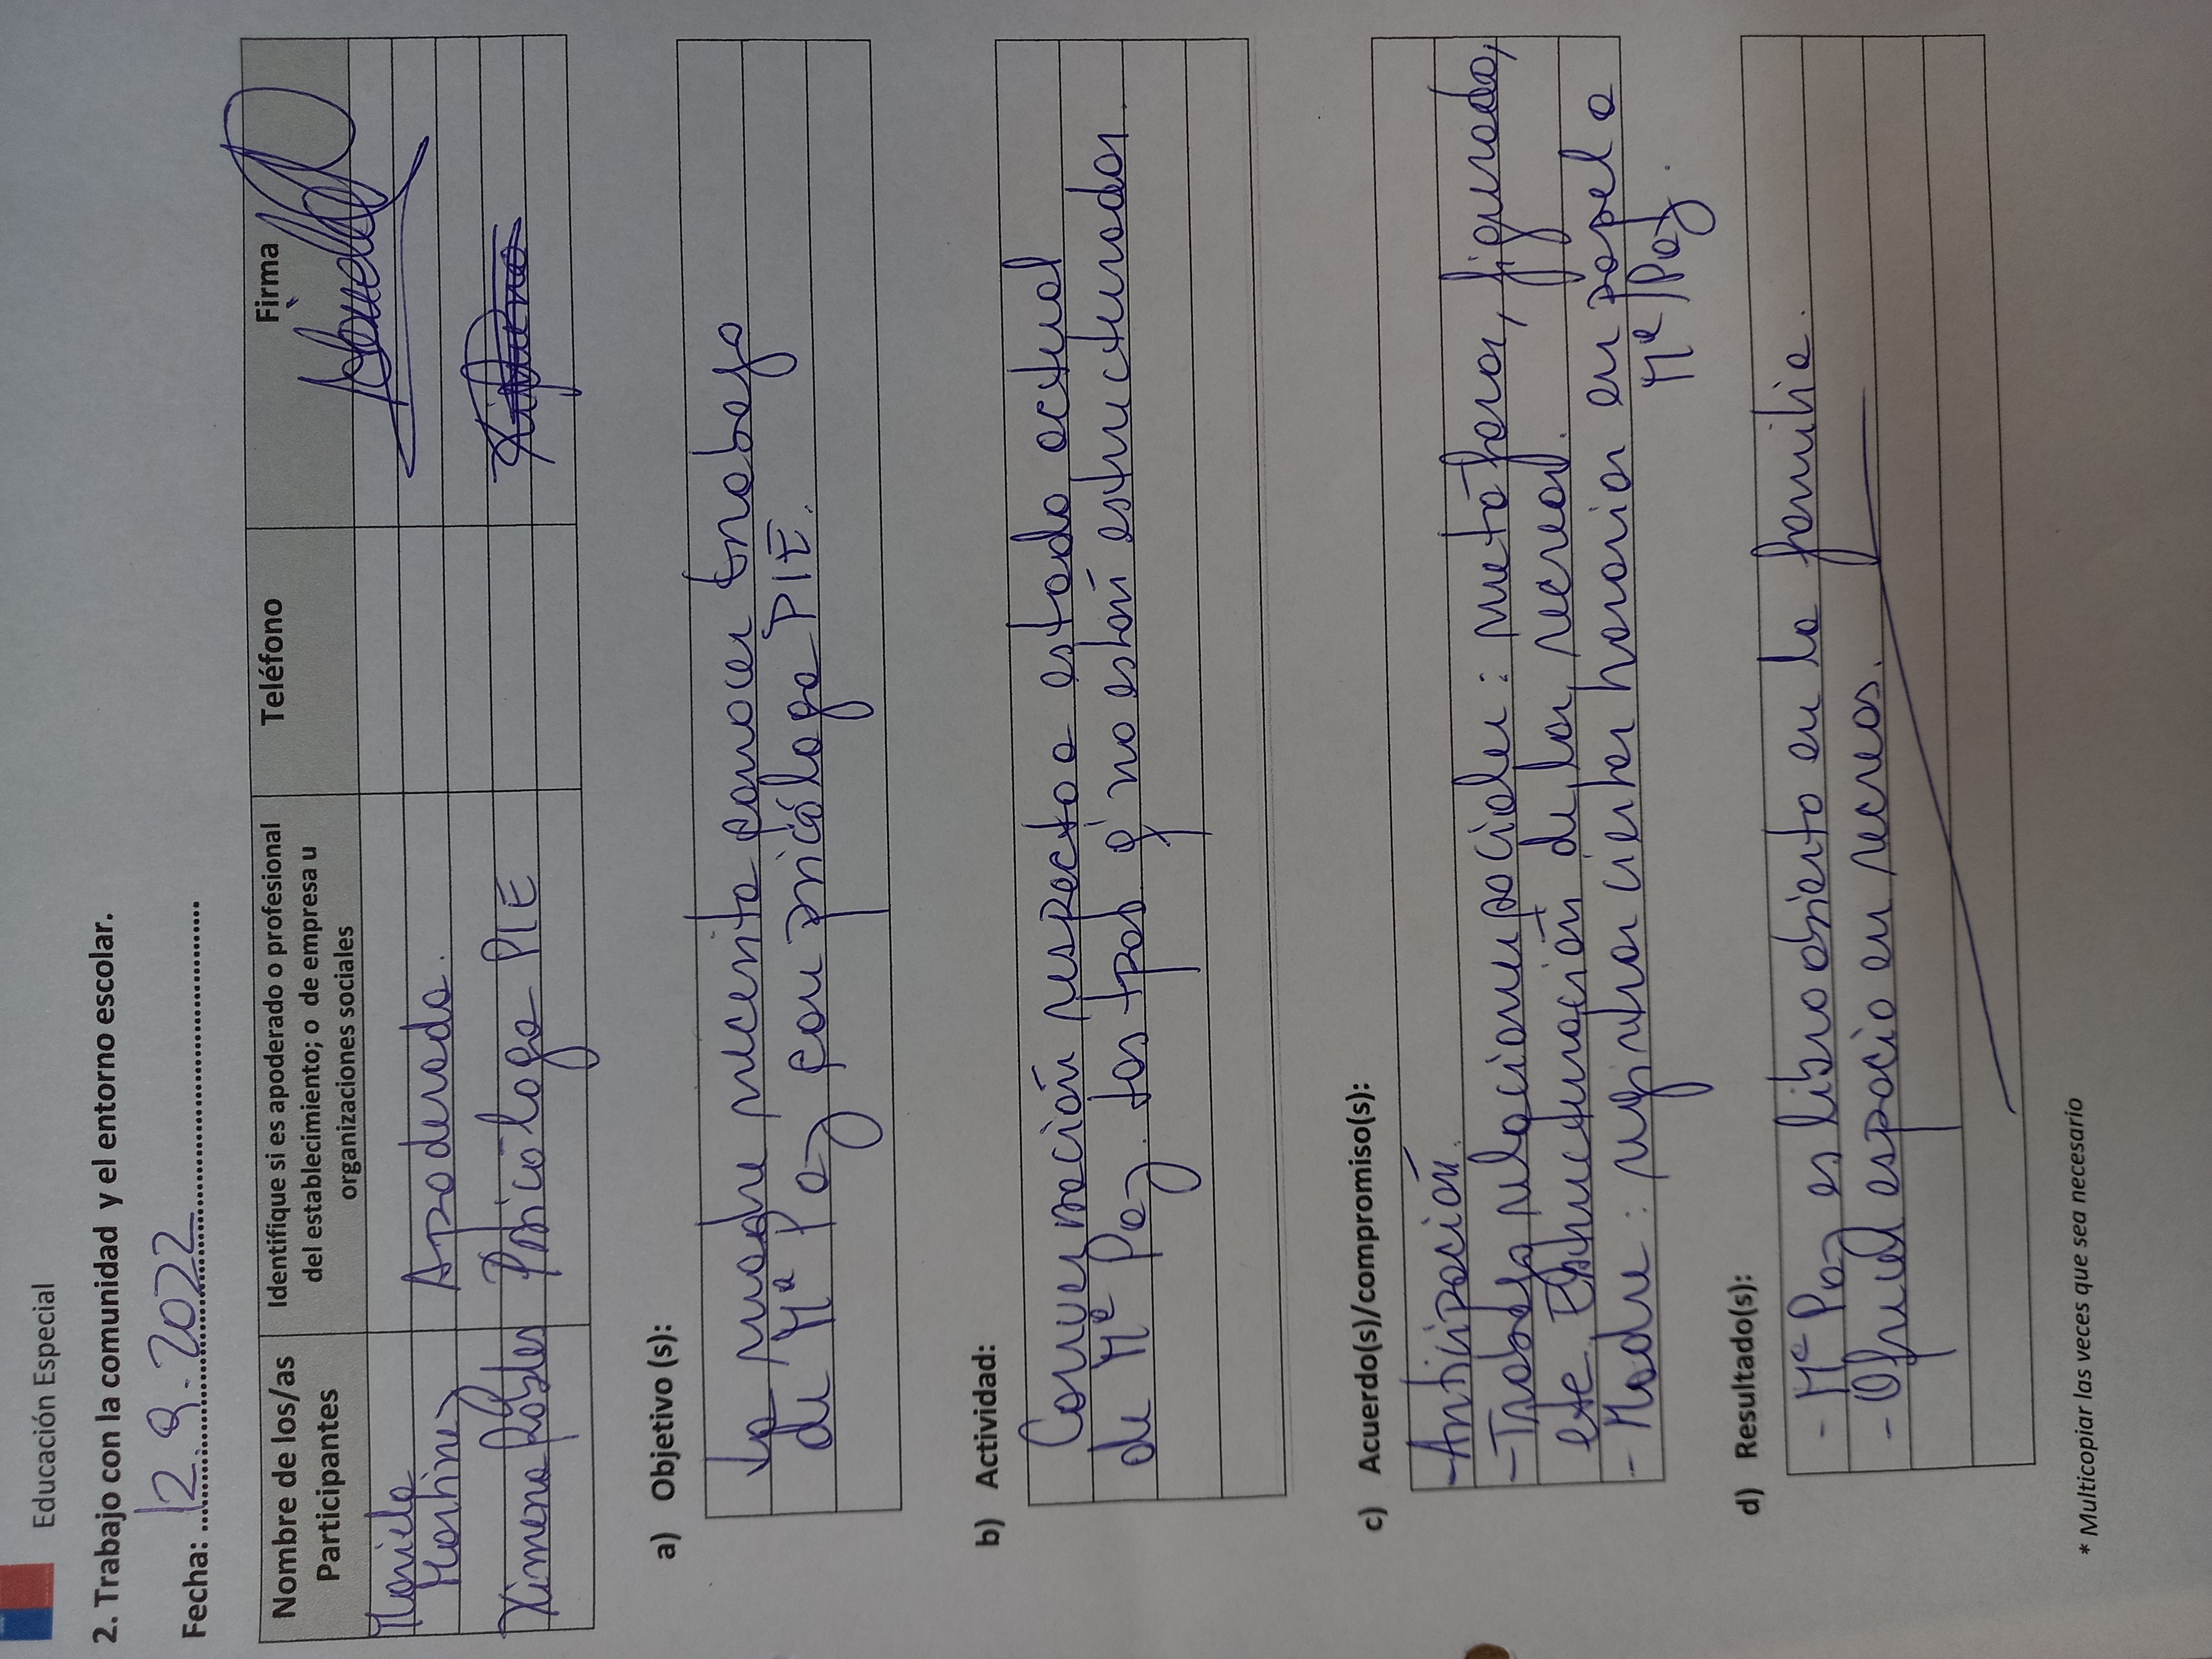 Educación Especial
2. Trabajo con la comunidad y el entorno escolar.
Fecha: 12.9.2022
Nombre de los/as Participantes
Identifique si es apoderado o profesional del establecimiento; o de empresa u organizaciones sociales
Teléfono
Firma
Mariela
Martinez Apoderada.
Ximena Robles Psicóloga PIE
a) Objetivo (s):
La madre necesita conocer trabajo
de Mª Paz con psicóloga PIE.
b) Actividad:
Conversación respecto a estado actual
de Mª Paz. Los tpos q' no están estructurados.
c) Acuerdo(s)/compromiso(s):
- Anticipación.
- Trabajo relaciones sociales: metáforas, figurado,
etc. Estructuración de los recreos.
- Madre: registrar ciertos horarios en papel a
Mª Paz.
d) Resultado(s):
- Mª Paz es libro abierto en la familia.
- Ofrecí espacio en recreos.
* Multicopiar las veces que sea necesario